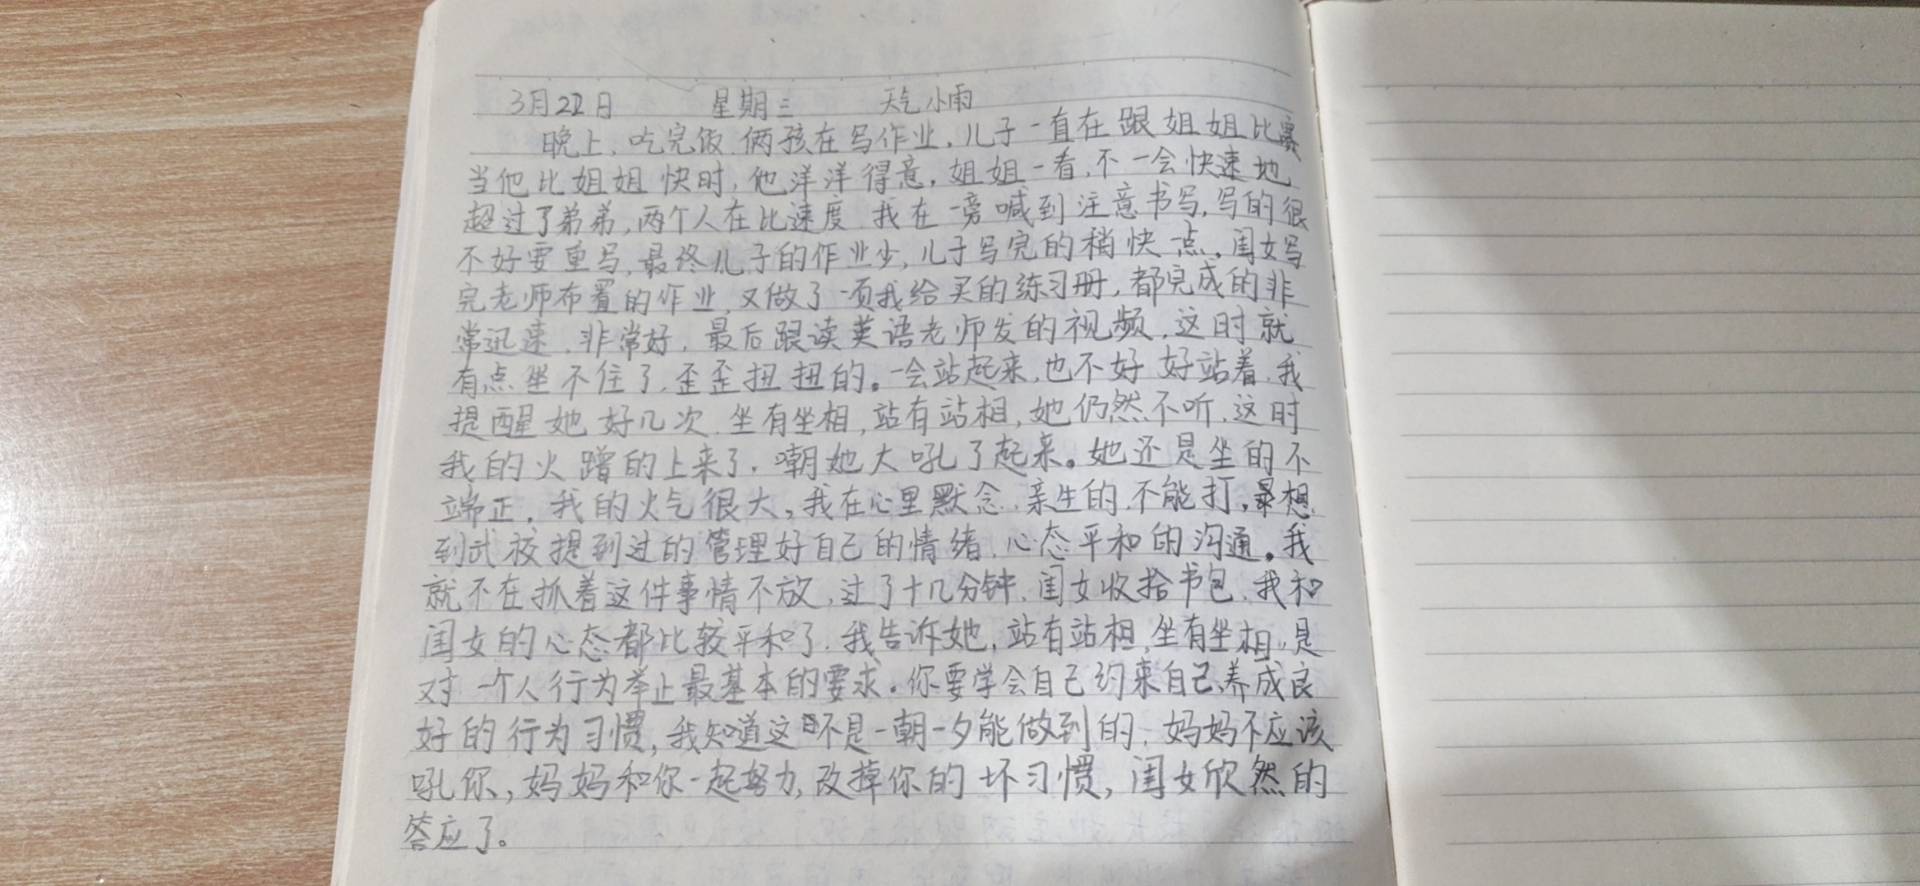 3月22日 星期三 天气小雨
晚上,吃完饭,俩孩在写作业,儿子一直在跟姐姐比赛
当他比姐姐快时,他洋洋得意,姐姐一看,不一会快速地
超过了弟弟,两个人在比速度,我在一旁喊到注意书写,写的很
不好要重写,最终儿子的作业少,儿子写完的稍快一点。闺女写
完老师布置的作业,又做了一项我给买的练习册,都完成的非
常迅速,非常好,最后跟读英语老师发的视频,这时就
有点坐不住了,歪歪扭扭的。一会站起来,也不好好站着,我
提醒她好几次,坐有坐相,站有站相,她仍然不听,这时
我的火蹭的上来了,嘲她大吼了起来。她还是坐的不
端正,我的火气很大,我在心里默念,亲生的,不能打,想
到武校提到过的管理好自己的情绪,心态平和的沟通。我
就不在抓着这件事情不放,过了十几分钟,闺女收拾书包,我和
闺女的心态都比较平和了,我告诉她,站有站相,坐有坐相,是
对一个人行为举止最基本的要求。你要学会自己约束自己,养成良
好的行为习惯,我知道这不是一朝一夕能做到的,妈妈不应该
吼你,妈妈和你一起努力,改掉你的坏习惯,闺女欣然的
答应了。